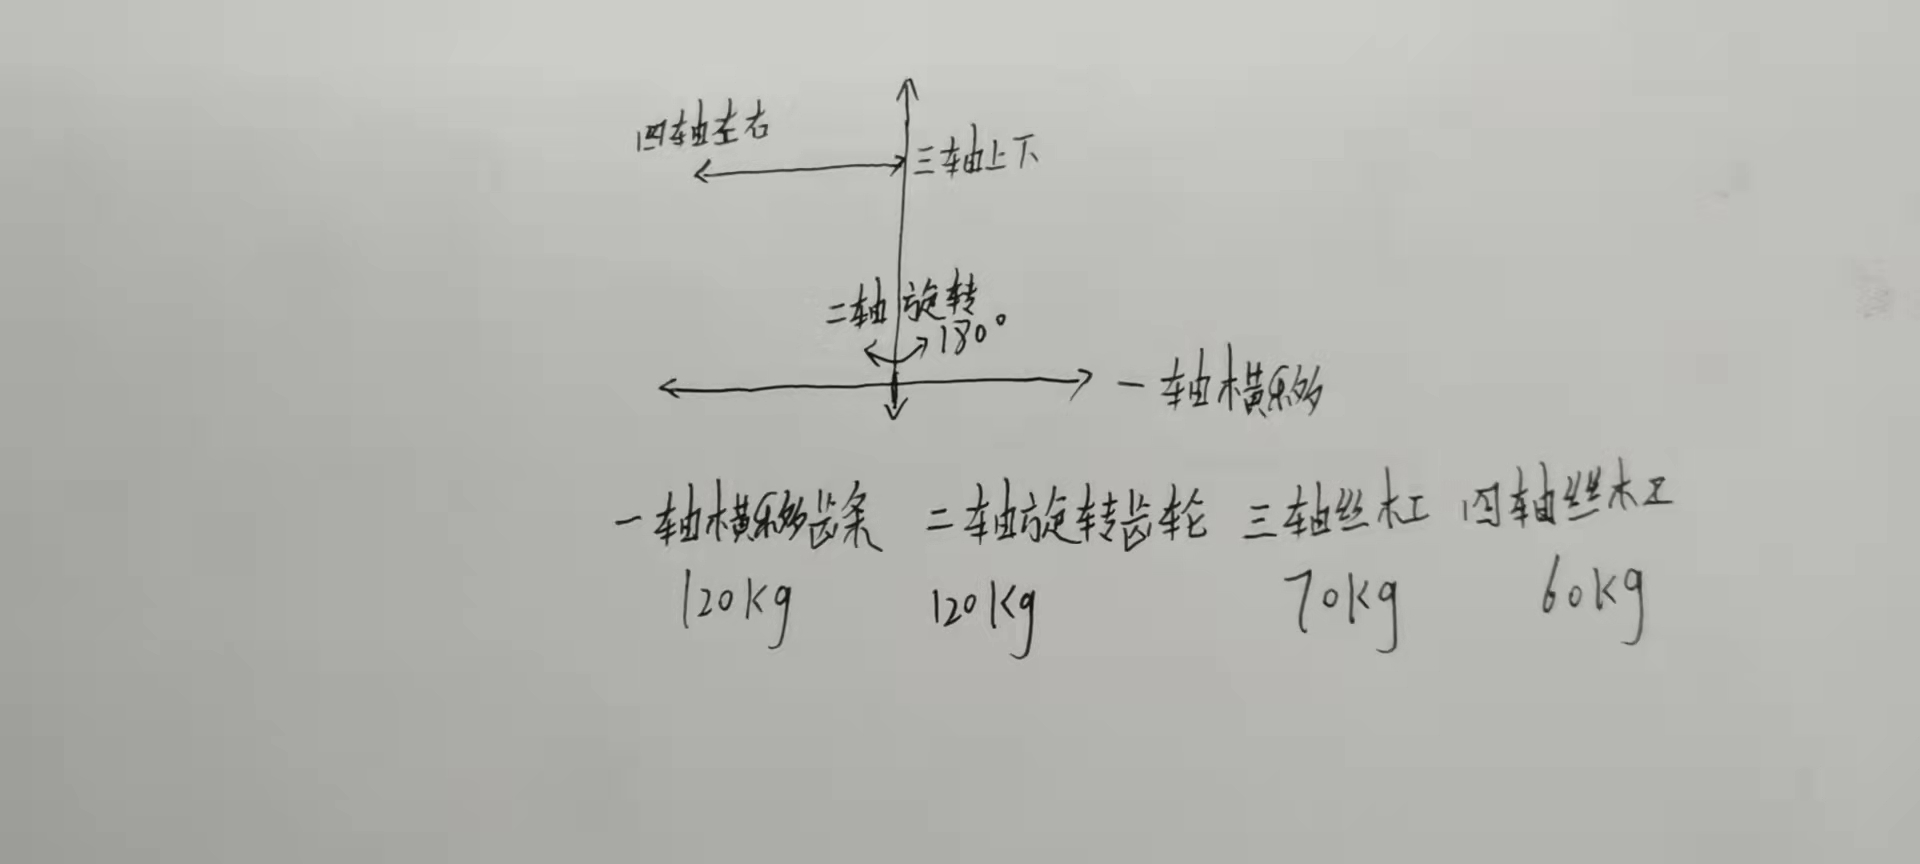 四轴左右
三轴上下
二轴旋转
180°
一轴横移
一轴横移齿条 二轴旋转齿轮 三轴丝杠 四轴丝杠
120kg 120kg 70kg 60kg